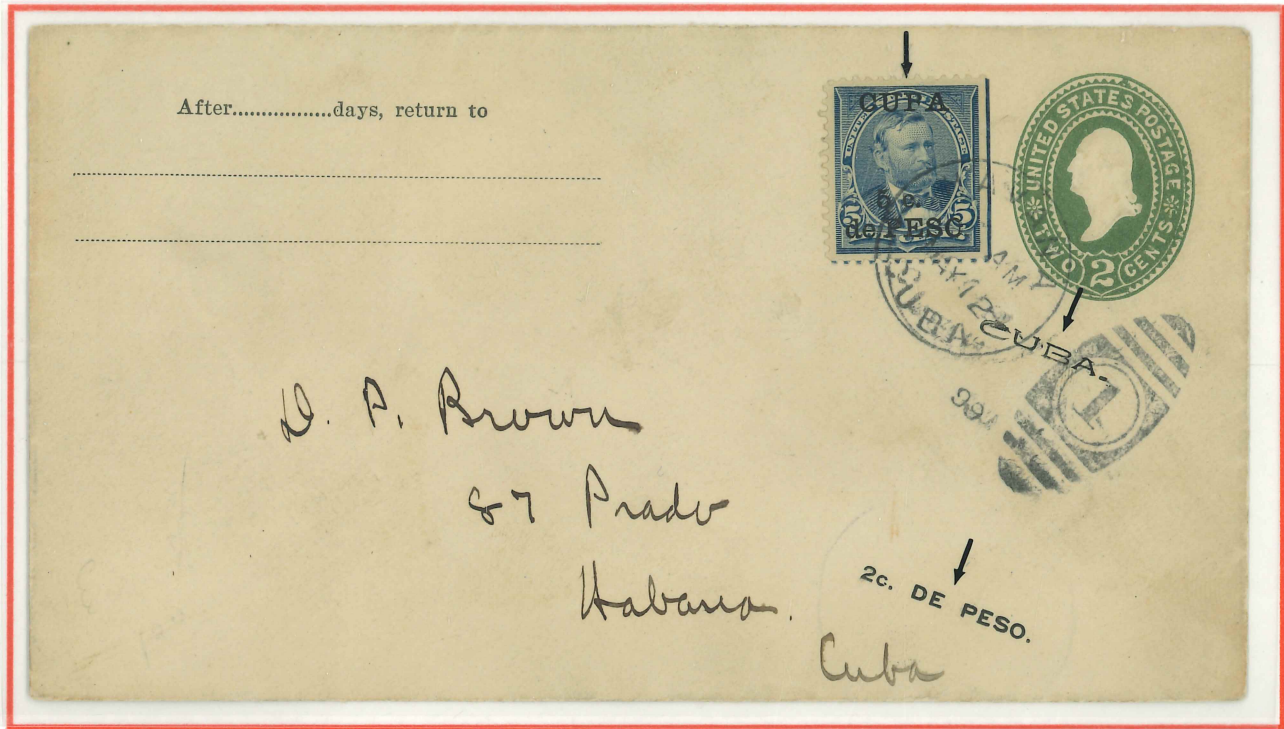 After.................days, return to
CUPA
5 c.
de PESO
5 5
UNITED STATES POSTAGE
TWO 2 CENTS
CUBA
CUBA.
1
D. P. Brown
87 Prado
Habana.
Cuba
2c. DE PESO.